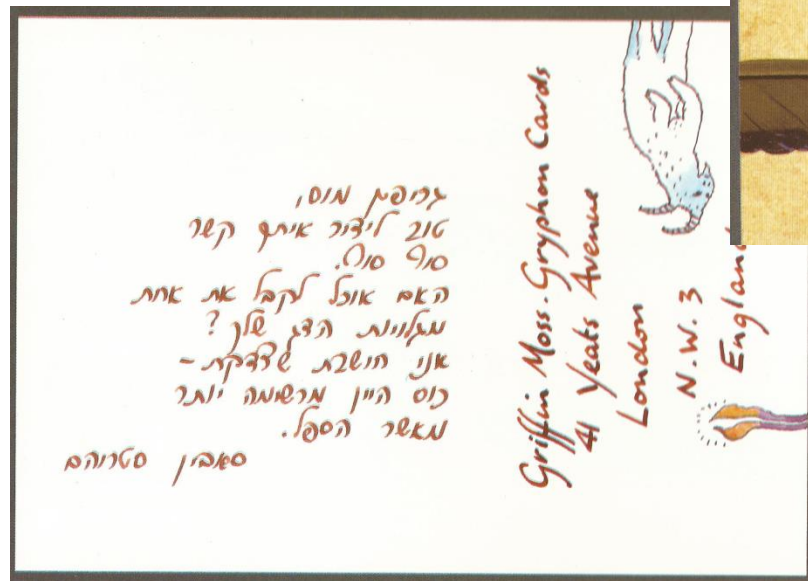 גריפין מוס,
טוב ליצור איתך קשר
סוף סוף.
האם אוכל לקבל את אחת
מגלויות הדג שלך?
אני חושבת שצדקת –
כוס היין מרשימה יותר
מאשר הספל.
סאבין סטרוהם
Griffin Moss. Gryphon Cards
41 Yeats Avenue
London
N.W.3
England